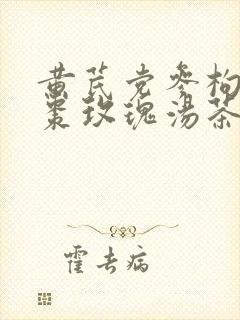 黄芪党参枸
枣玫瑰汤茶
霍去病